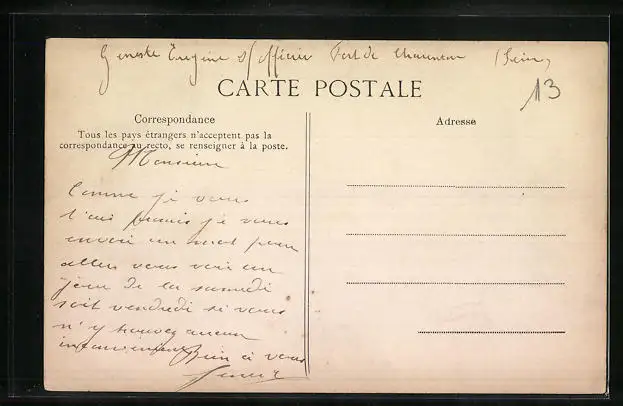 Geneste Eugène S/officier Fort de Charenton (Seine)
13
CARTE POSTALE
Correspondance
Tous les pays étrangers n'acceptent pas la
correspondance au recto, se renseigner à la poste.
Adresse
Monsieur
Comme je vous
l'ai promis je vous
envoi un mot pour
aller vous voir un
jour de la
soit vendredi si vous
n'y trouvez aucun
inconvénient Bien à vous